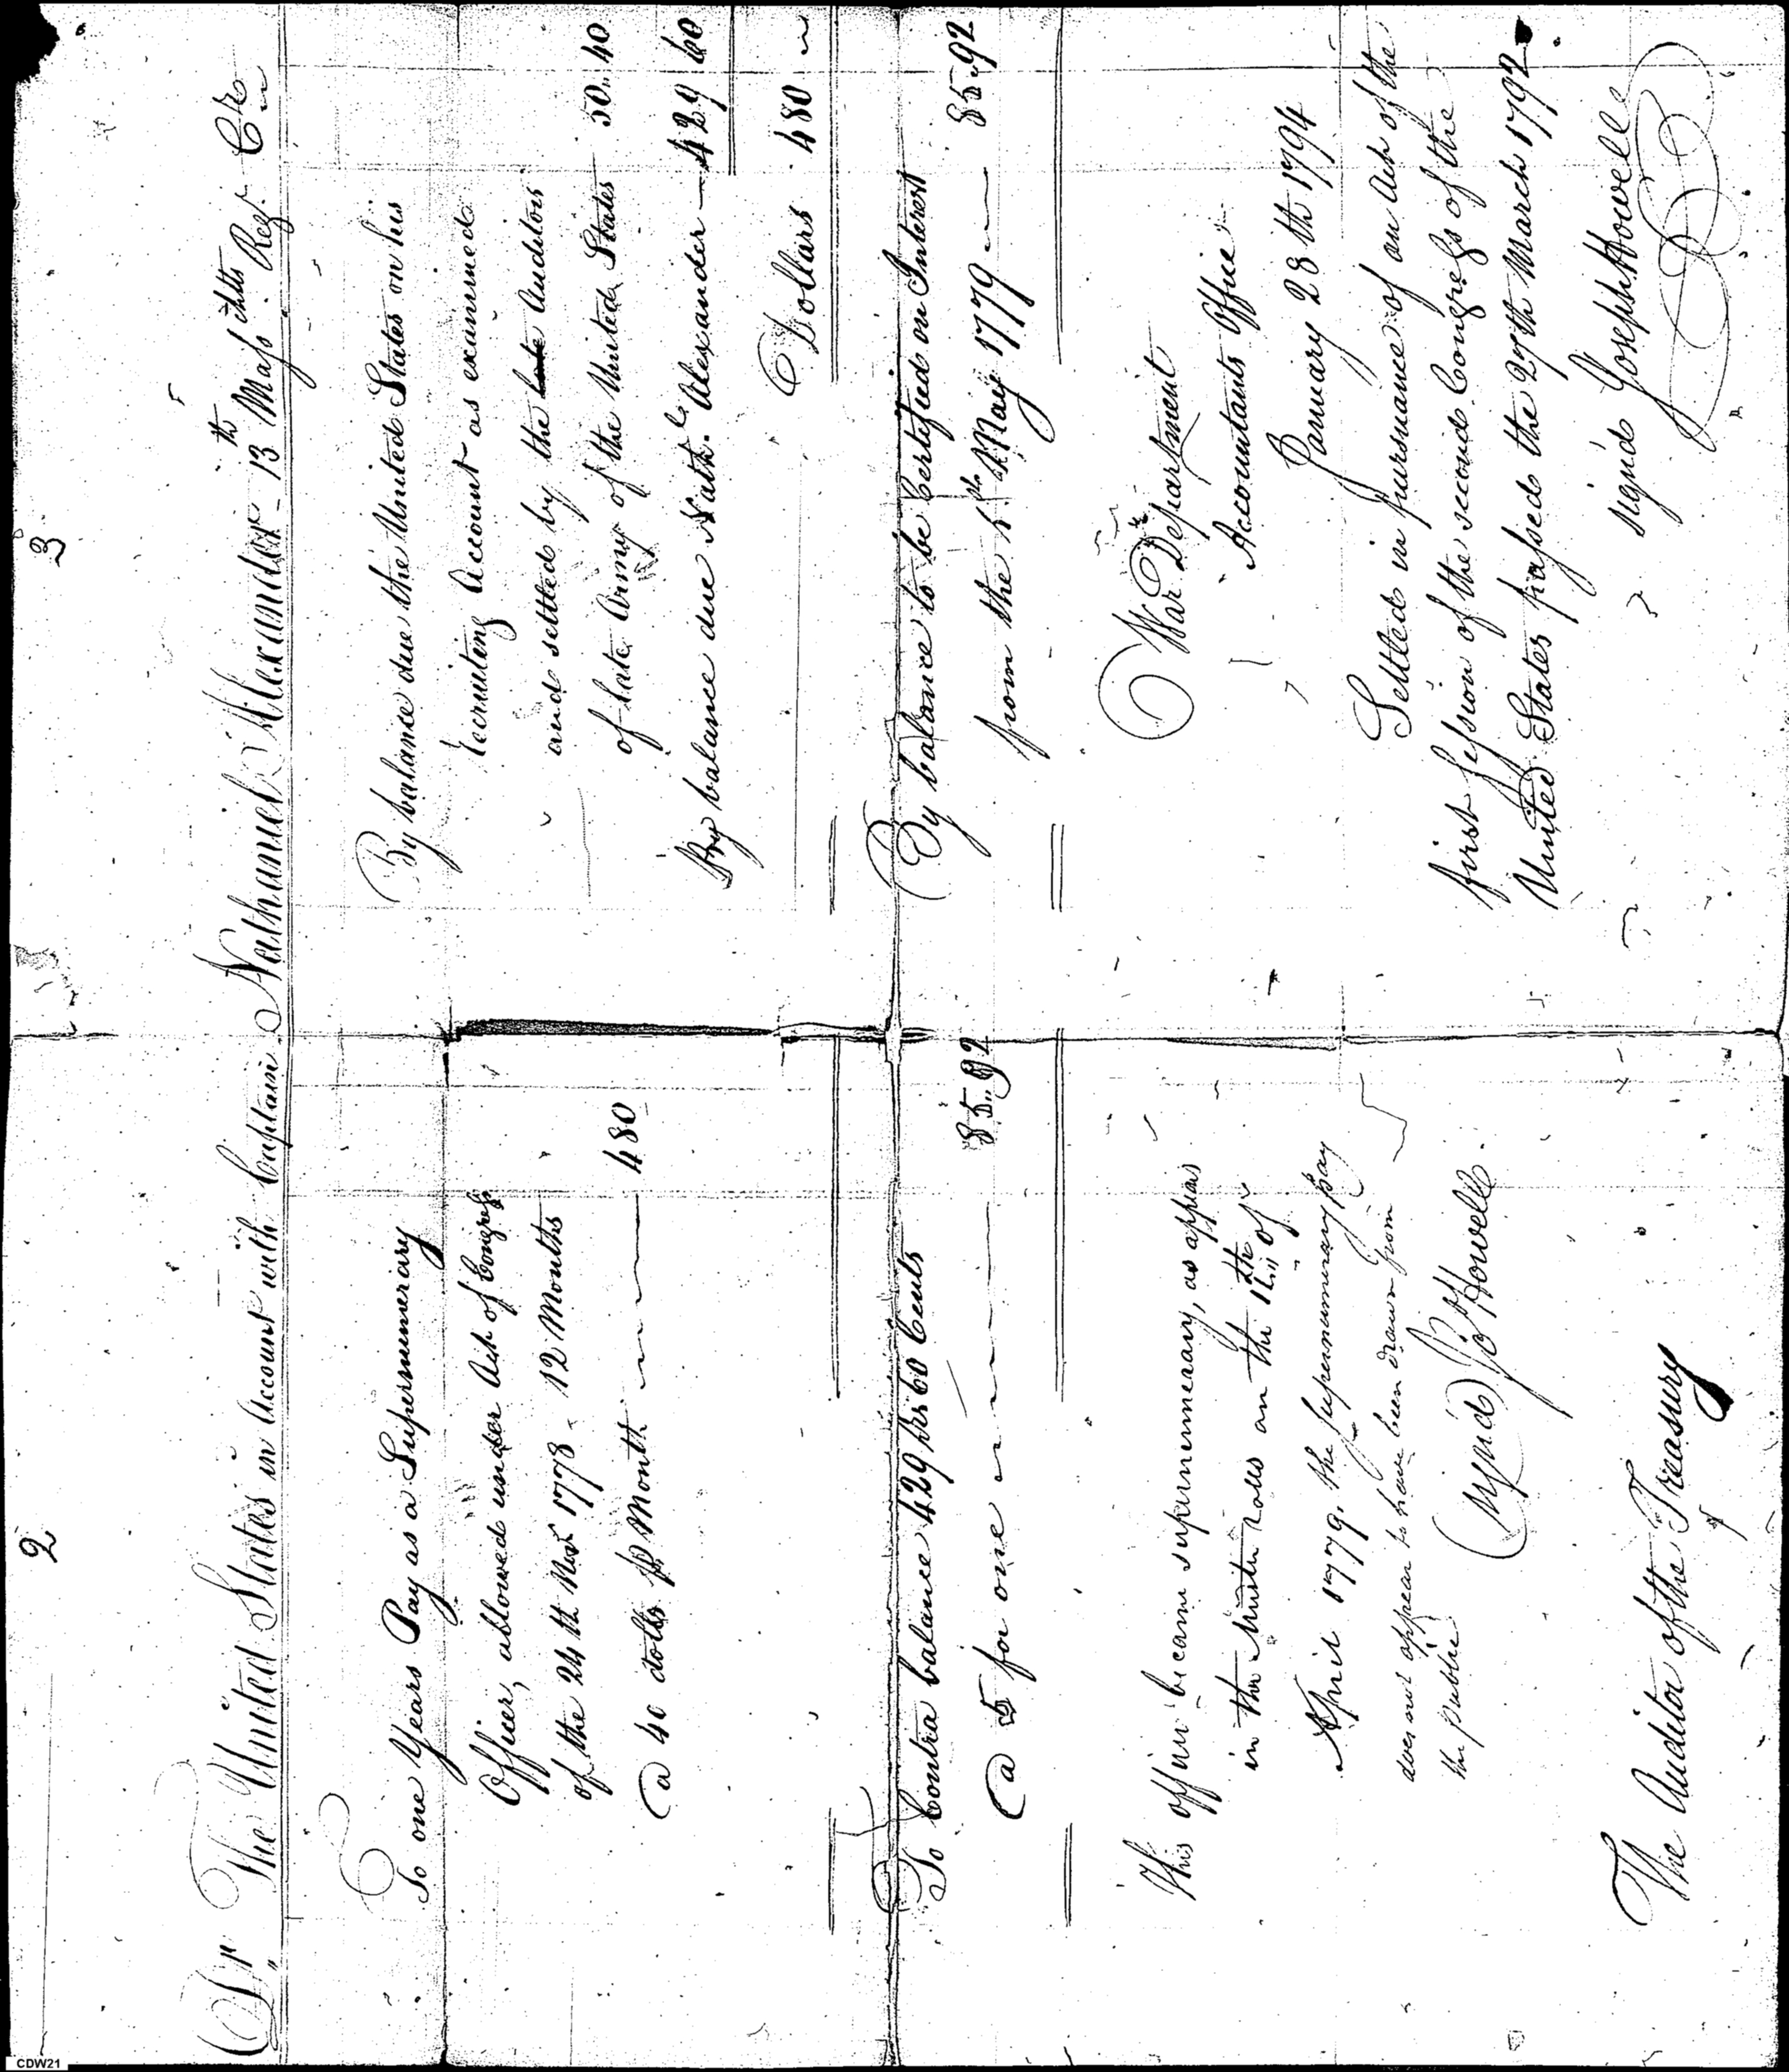 2
Dr. The United States in Account with Captain Nathaniel Alexander 13th Massachtts Regt. Cr
To one Years Pay as a Supernumerary
Officer, allowed under Act of Congress
of the 24th Novr 1778 - 12 Months
@ 40 dolls P Month 480
To Contra balance 429 drs 60 Cents
@ 5 for one 85..92
This officer became supernumerary, as appears
in the Muster rolls on the of
April 1779. the supernumerary pay
does not appear to have been drawn from
the public
signd Jos Howell.
The Auditor of the Treasury
3
By balance due the United States on his
recruiting Account as examined
and settled by the late Auditors
of late Army of the United States 50..40
By balance due Nathl. Alexander 429 60
Dollars 480
By balance to be certified on Interest
from the May 1779 85.92
War Department
Accountants Office
January 28th 1794
Settled in pursuance of an Act of the
first session of the second Congress of the
United States passed the 27th March 1792
signd Joseph Howell
CDW21